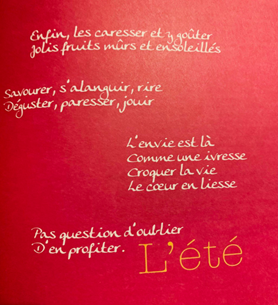 Enfin, les caresser et y goûter
Jolis fruits mûrs et ensoleillés
Savourer, s'alanguir, rire
Déguster, paresser, jouir
L'envie est là
Comme une ivresse
Croquer la vie
Le cœur en liesse
Pas question d'oublier
D'en profiter.
L'été